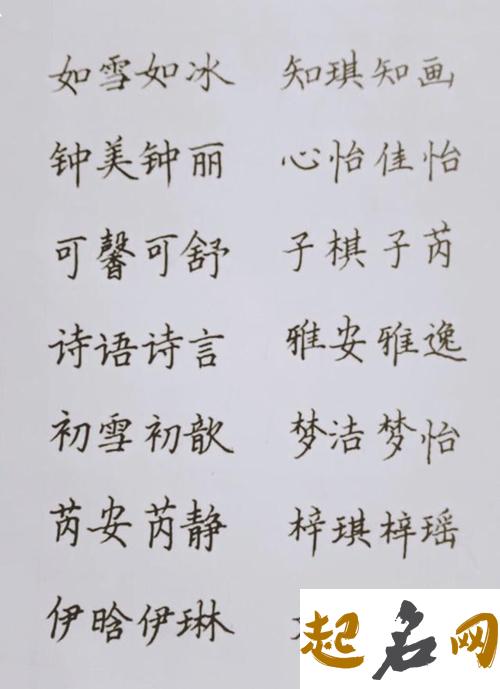 如雪如冰 知琪知画
钟美钟丽 心怡佳怡
可馨可舒 子棋子芮
诗语诗言 雅安雅逸
初雪初歆 梦洁梦怡
芮安芮静 梓琪梓瑶
伊晗伊琳
起名网